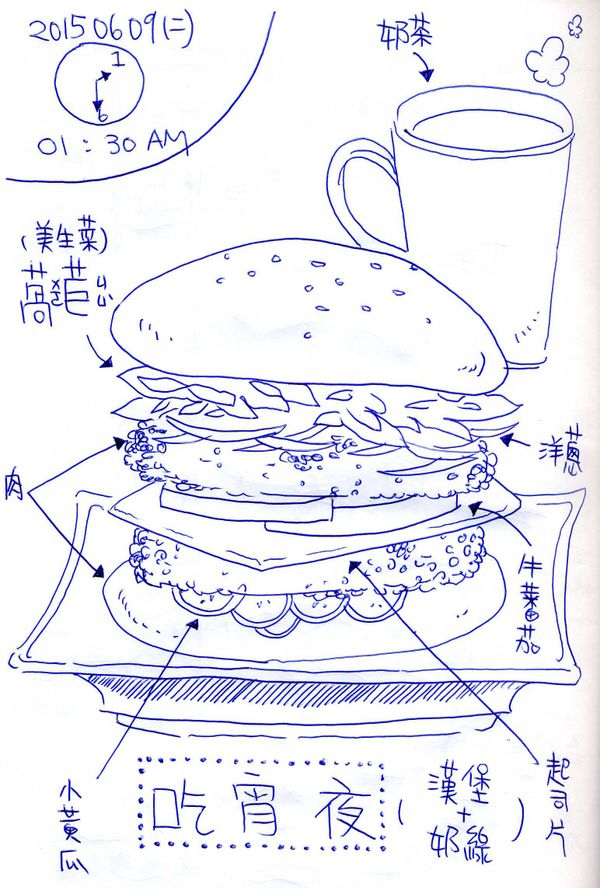 20150609(二)
1
6
01:30 AM
奶茶
(美生菜)
萵苣
洋蔥
肉
牛蕃茄
起司片
小黃瓜
吃宵夜(漢堡+奶綠)